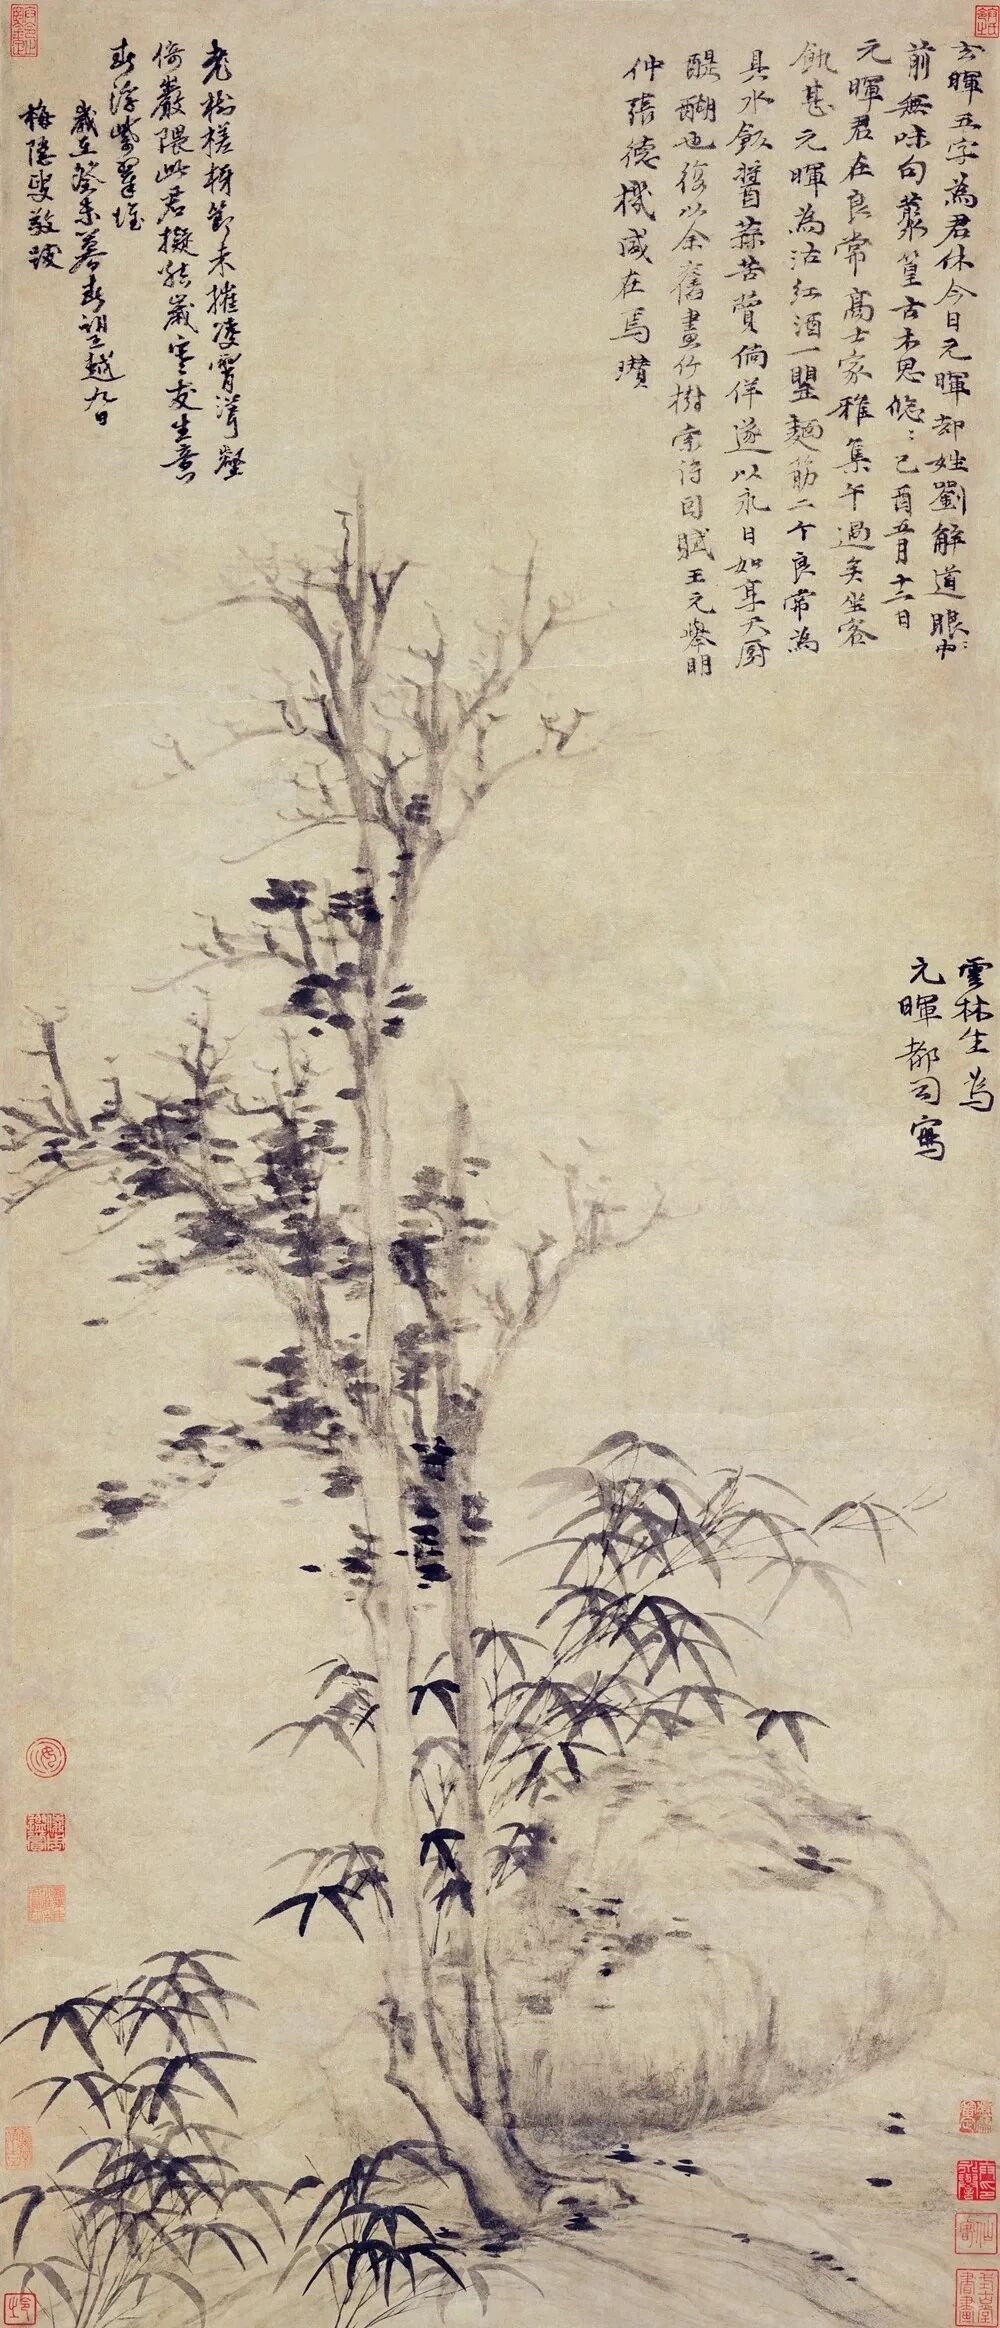 玄暉五字為君休今日元暉却姓劉解道眼〻中
前無味句叢篁古木思悠〻己酉五月十二日
元暉君在良常高士家雅集午過矣坐客
飢甚元暉為沽紅酒一罌麵筋二个良常為
具水飯醬蒜苦蕒徜徉遂以永日如享天廚
醍醐也復以余舊畫竹樹索詩因賦王元舉明
仲張德機咸在焉瓚
老樹槎枒節未摧凌霄溜壑
倚巖隈此君擬結歲寒友生意
春浮紫翠堆
歲在癸未暮春望越九日
梅隱叟敬跋
雲林生為
元暉都司寫